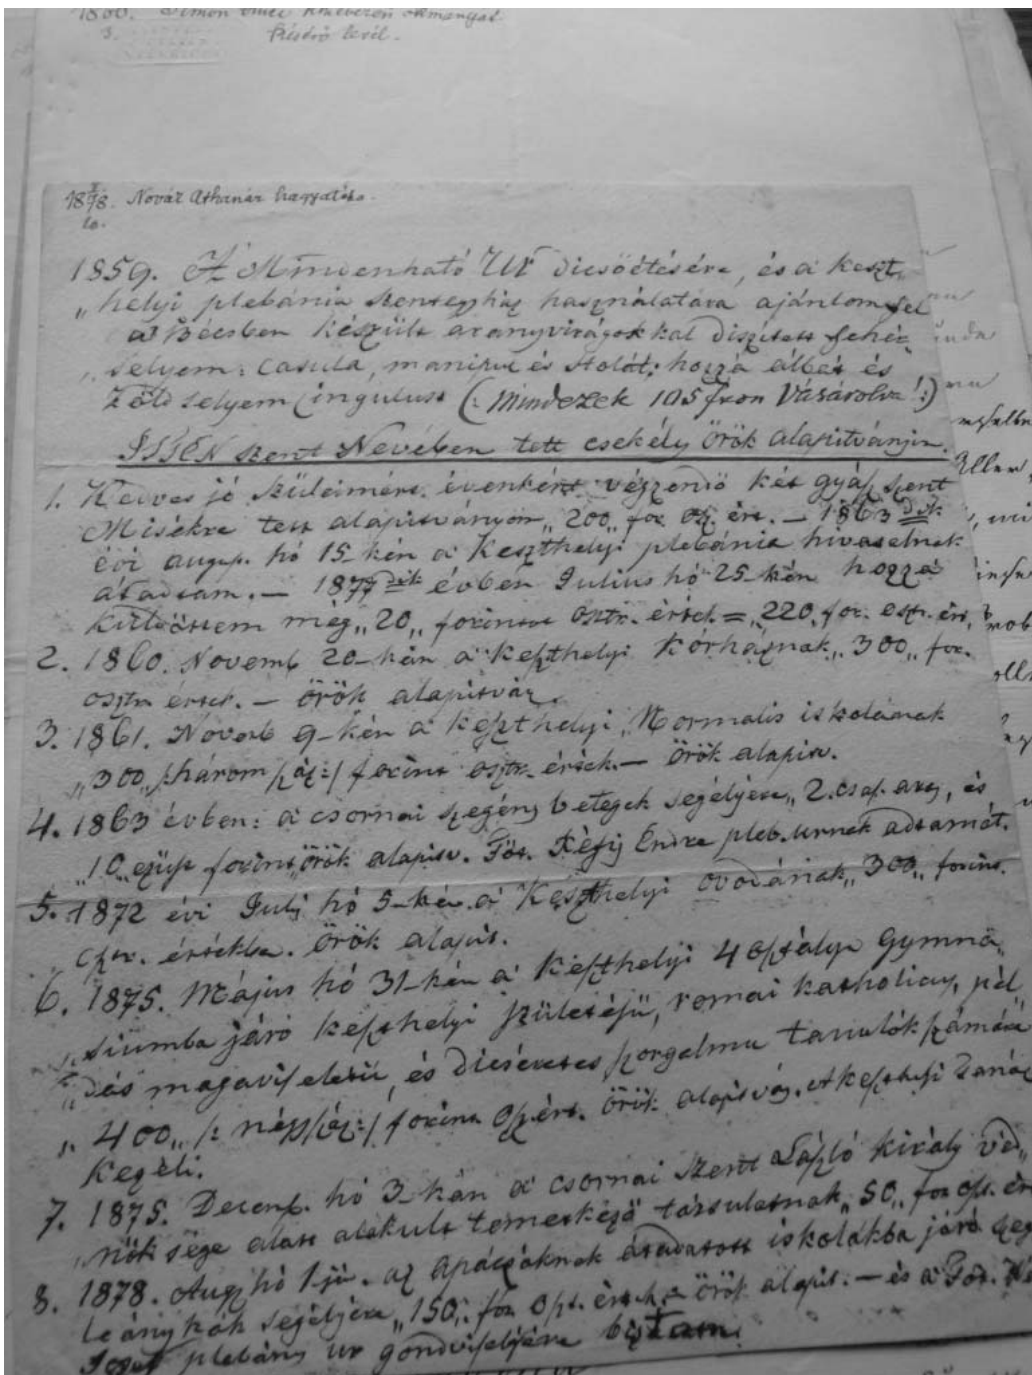 1860. Simon Vince
Kísérő levél.
18 X/78. Novák Athanáz hagyatéka.
10.
1859. A Mindenható Úr dicsőétésére, és a' keszt„
„helyi plebánia szentegyház használatára ajánlom fel
a' Bécsben készült aranyvirágokkal diszitett fehér„
„selyem: casula, manipul és stolát; hozzá albát és
Zöld selyem Cingulust (: Mindezek 105 fron Vásárolva!:)
ISTEN szent Nevében tett csekély örök alapitványim.
1. Kedves jó szüleimért. évenként végzendő két gyász szent
Misékre tett alapitványom „200„ for. osz. ért. — 1863 dik
évi augus. hó 15-kén a' Keszthelyi plebánia hivatalnak
átadtam. — 1877 dik évben Julius hó 25-kén hozzá
küldöttem még „20„ forintot osztr. érték. = „220„ for. oszt. ért.
2. 1860. Novemb 20-kán a' keszthelyi kórháznak „300„ for.
osztr. érték. — örök alapitvány.
3. 1861. Novemb 9-kén a' keszthelyi Normalis iskolának
„300„ /:három száz:/ forint osztr. érték. — örök alapitv.
4. 1863 évben: a' csornai szegény betegek segélyére „2. csás. arany, és
„10„ ezüst forint, örök alapitv. Főt. Endre pleb. urnak adtam át.
5. 1872 évi Julj hó 5-kén. a' Keszthelyi ovodának „300„ forint.
osztr. értékbe. örök alapit.
6. 1875. Május hó 31-kén a' Keszthelyi 4 osztályu Gymná„
„siumba járó keszthelyi születésü, romai katholicus, pél„
„dás magaviseletü, és dicséretes szorgalmu tanulók számára
„400„ /: négyszáz:/ forint osz. ért. örök alapitvány. A keszthelyi Tanár
kezeli.
7. 1875. Decemb. hó 3-kán a' csornai szent László király véd„
„nöksége alatt alakult temetkező társulatnak „50„ for. oszt. ér
8. 1878. Aug hó 1jén. az apáczáknak átadatott iskolákba járó szeg
leánykák segélyére „150„ for. oszt. érték. örök alapit. — és a' Főt.
József plebános ur gondviselésére biztam.